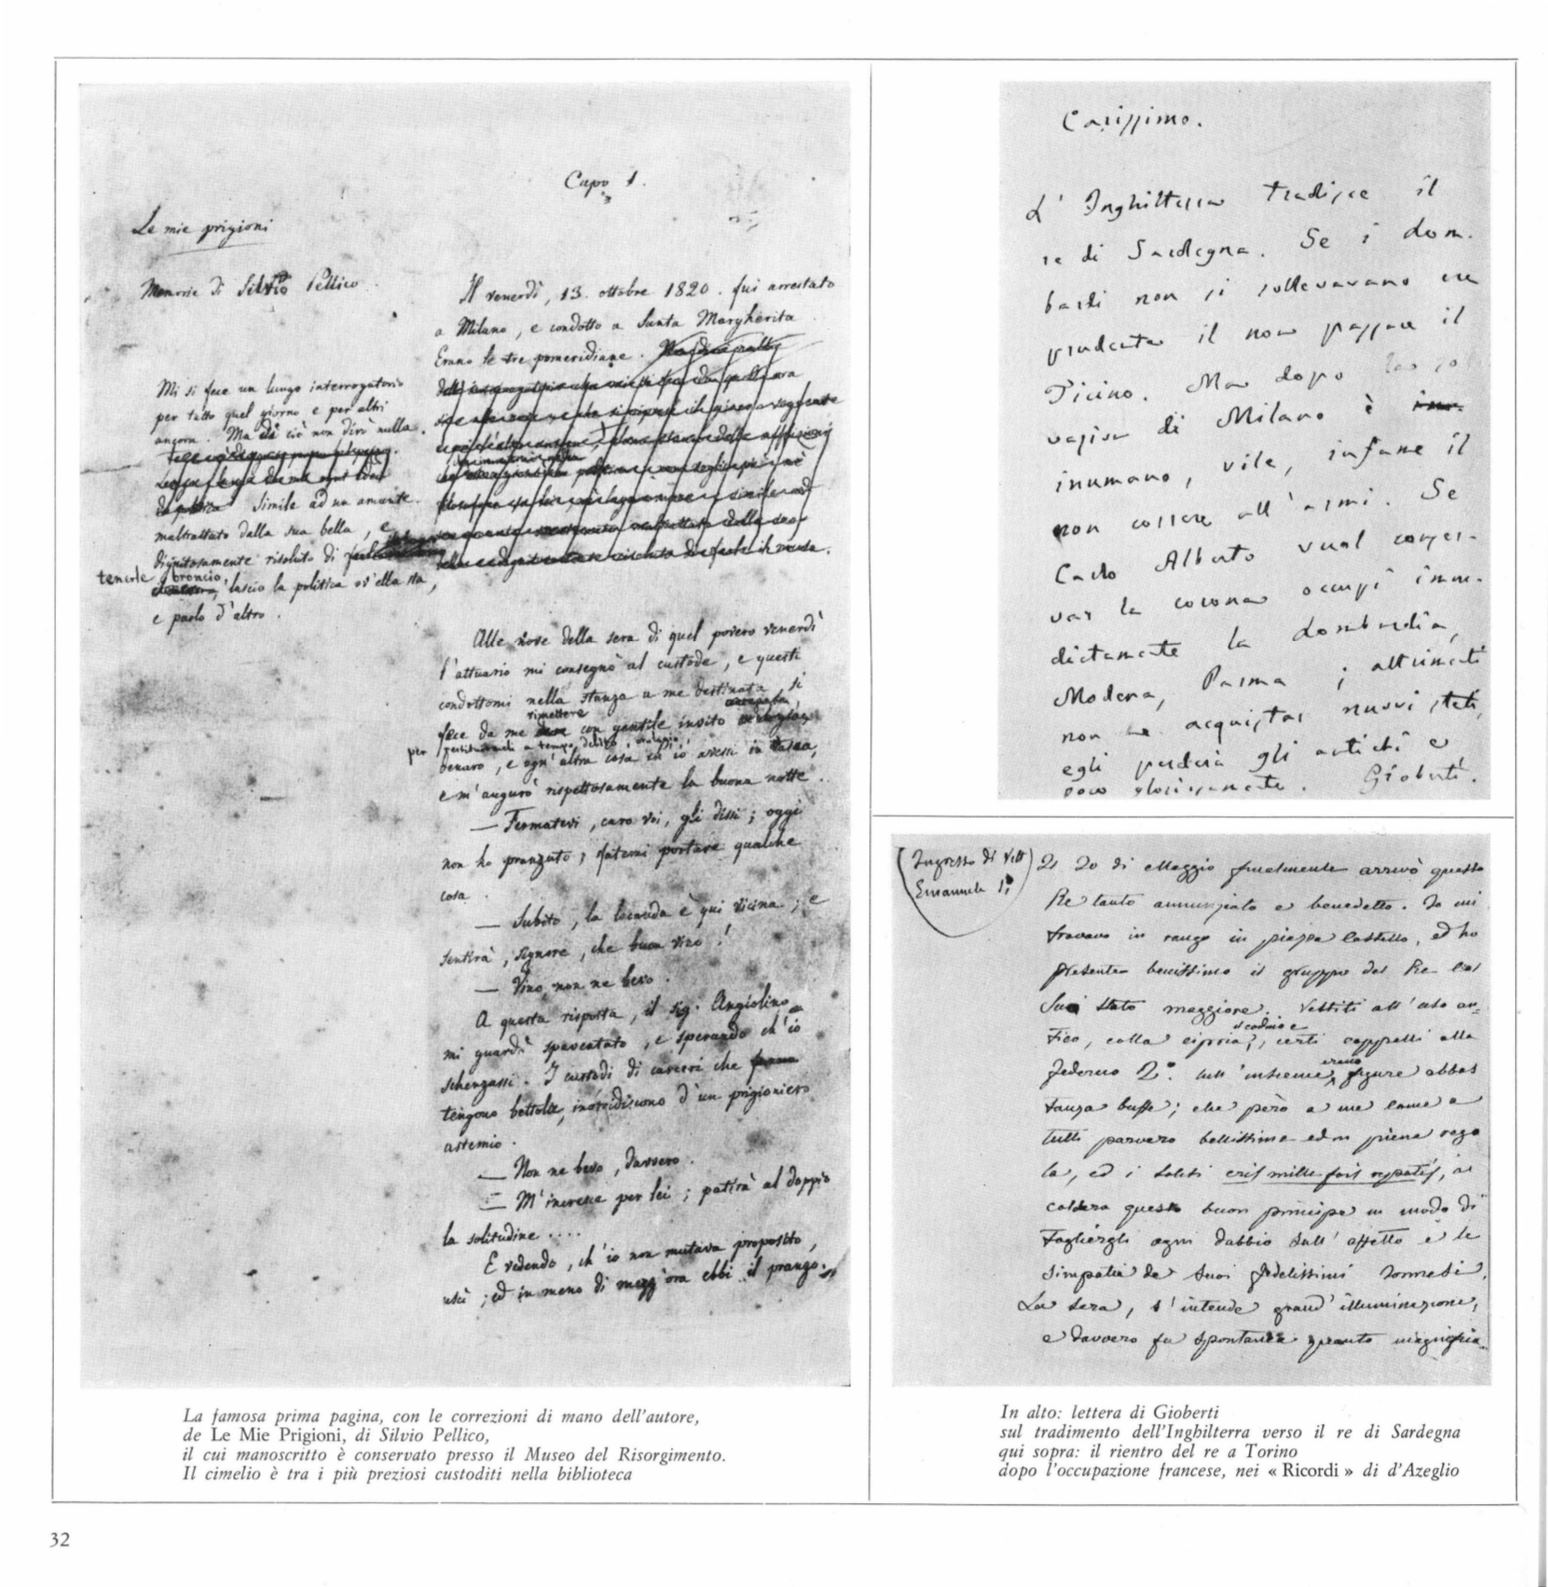 Capo 1.
Le mie prigioni
Memorie di Silvio Pellico.
Il venerdì, 13. ottobre 1820. fui arrestato
a Milano, e condotto a Santa Margherita.
Erano le tre pomeridiane.
Mi si fece un lungo interrogatorio
per tutto quel giorno e per altri
ancora. Ma di ciò non dirò nulla.
Simile ad un amante
maltrattato dalla sua bella, e
dignitosamente risoluto di
tenerle broncio,
lascio la politica ov'ella sta,
e parlo d'altro.
Alle nove della sera di quel povero venerdì
l'attuario mi consegnò al custode, e questi
condottomi nella stanza a me destinata, si
fece da me rimettere con gentile invito
per restituirmeli a tempo debito, orologio,
denaro, e ogn'altra cosa ch'io avessi in tasca,
e m'augurò rispettosamente la buona notte.
— Fermatevi, caro voi, gli dissi; oggi
non ho pranzato; fatemi portare qualche
cosa.
— Subito, la locanda è qui vicina; e
sentirà, signore, che buon vino!
— Vino, non ne bevo.
A questa risposta, il sig. Angiolino
mi guardò spaventato, e sperando ch'io
scherzassi. I custodi di carceri che
tengono bettola, inorridiscono d'un prigioniero
astemio.
— Non ne bevo, davvero.
— M'incresce per lei; patirà al doppio
la solitudine....
E vedendo, ch'io non mutava proposito,
uscì; ed in meno di mezz'ora ebbi il pranzo.
La famosa prima pagina, con le correzioni di mano dell'autore,
de Le Mie Prigioni, di Silvio Pellico,
il cui manoscritto è conservato presso il Museo del Risorgimento.
Il cimelio è tra i più preziosi custoditi nella biblioteca
Carissimo.
L'Inghilterra tradisce il
re di Sardegna. Se i Lom-
bardi non si sollevavano era
prudente il non passare il
Ticino. Ma dopo
di Milano è
inumano, vile, infame il
non correre all'armi. Se
Carlo Alberto vuol conser-
var la corona occupi imme-
diatamente la Lombardia,
Modena, Parma; altrimenti
non acquistar nuovi stati,
egli perderà gli antichi e
poco gloriosamente. Gioberti.
(Ingresso di Vitt
Emanuele I°)
Il 20 di Maggio finalmente arrivò questo
Re tanto annunziato e benedetto. Io mi
trovavo in rango in piazza Castello, ed ho
presente benissimo il gruppo del Re col
suo Stato maggiore. Vestiti all'uso an-
tico, colla cipria, il codino e certi cappelli alla
Federico 2°. tutt'insieme, erano figure abbas
tanza buffe; che però a me come a
tutti parvero bellissime ed in piena rego
la, ed i soliti cris mille fois répétés,
questo buon principe in modo di
togliergli ogni dubbio sull'affetto e le
simpatie de suoi fedelissimi Torinesi.
La sera, s'intende grand'illuminazione,
e davvero fu spontanea quanto magnifica
In alto: lettera di Gioberti
sul tradimento dell'Inghilterra verso il re di Sardegna
qui sopra: il rientro del re a Torino
dopo l'occupazione francese, nei « Ricordi » di d'Azeglio
32